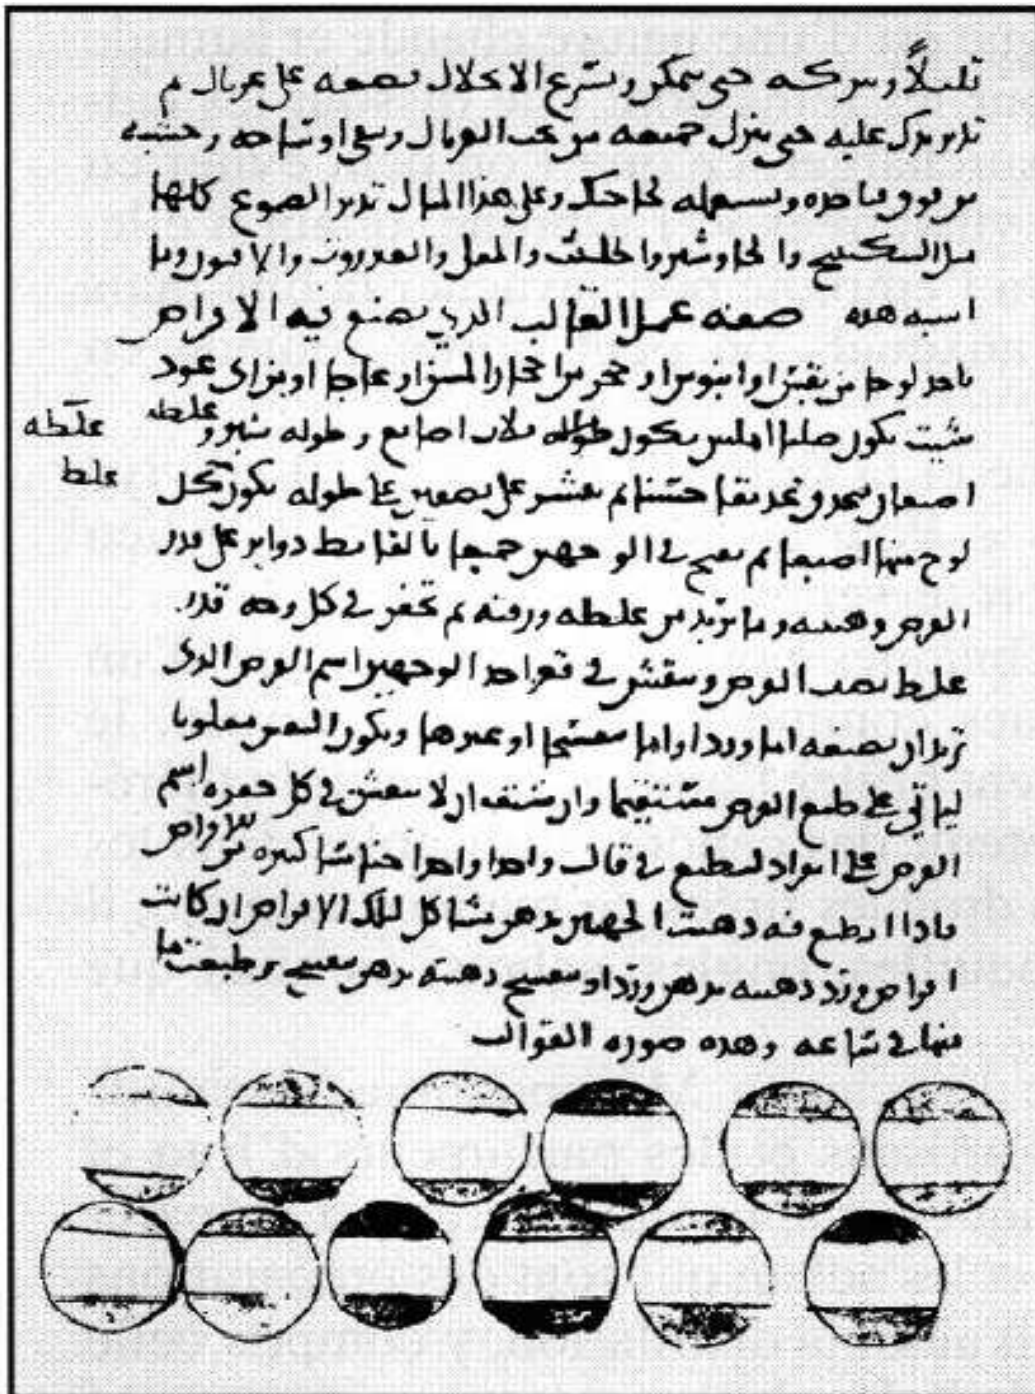 قليلاً وتتركه حتى يتمكن ويسرع الانحلال تضعه على غربال ثم
تدلك عليه حتى ينزل جميعه من تحت الغربال ويبقى اوساخه وخشبه
من فوق فاخذه وتستعمله لحاجتك وعلى هذا المثال تدبر الصموغ كلها
مثل السكبينج والجاوشير والحلتيت والمقل والافيون وما
اشبه هذه صفة عمل القالب الذي يصنع فيه الاقراص
ياخذ لوحا من بقس او ابنوس او حجر من احجار المسن او عاجا او من اى عود
شيت يكون صلبا املس يكون طوله ثلاث اصابع وطوله شبر وغلظه
غلظه
غلظ
اصبعان حسنا ثم ينشر على نصفين على طوله يكون كل
لوح منها اصبعا ثم تفتح في الوجهين جميعا بالضابط دواير على قدر
القرص وهيئته وما تريد من غلظه ورقته ثم تحفر في كل وجه قدر
غلظ نصف القرص وينقش في قعر احد الوجهين اسم القرص الذى
تريد ان تصنعه اما وردا واما بنفسجا او غيرها ويكون النقش مقلوبا
لياتي على طبع القرص مستقيما وان شئت ان لا ينقش في كل حفره اسم
القرص على انواد لتطبع في قالب واحدا واحدا اجناسا كثيره من الاقراص
فاذا انطبع فيه دهنت الجهتين بدهن مشاكل لتلك الاقراص ان كانت
اقراص ورد دهنته بدهن ورد او بنفسج دهنته بدهن بنفسج ثم طبعت ما
منها في ساعه وهذه صوره القوالب